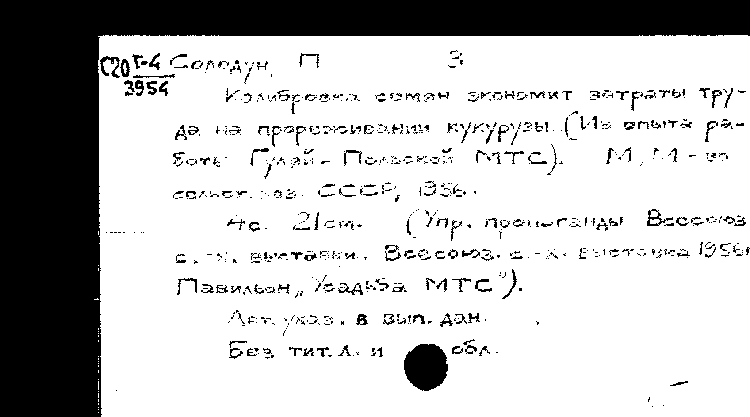 С20 Г-4 Солодун, П З
3954
Калибровка семян экономит затраты тру-
да на прореживании кукурузы. (Из опыта ра-
боты Гуляй-Польской МТС). М, М-во
сельск. хоз. СССР, 1956.
4с. 21см. (Упр. пропаганды Всесоюз
с.-х. выставки. Всесоюз. с.-х. выставка 1956г
Павильон „Усадьба МТС").
Авт. указ. в вып. дан.
Без тит. л. и обл.